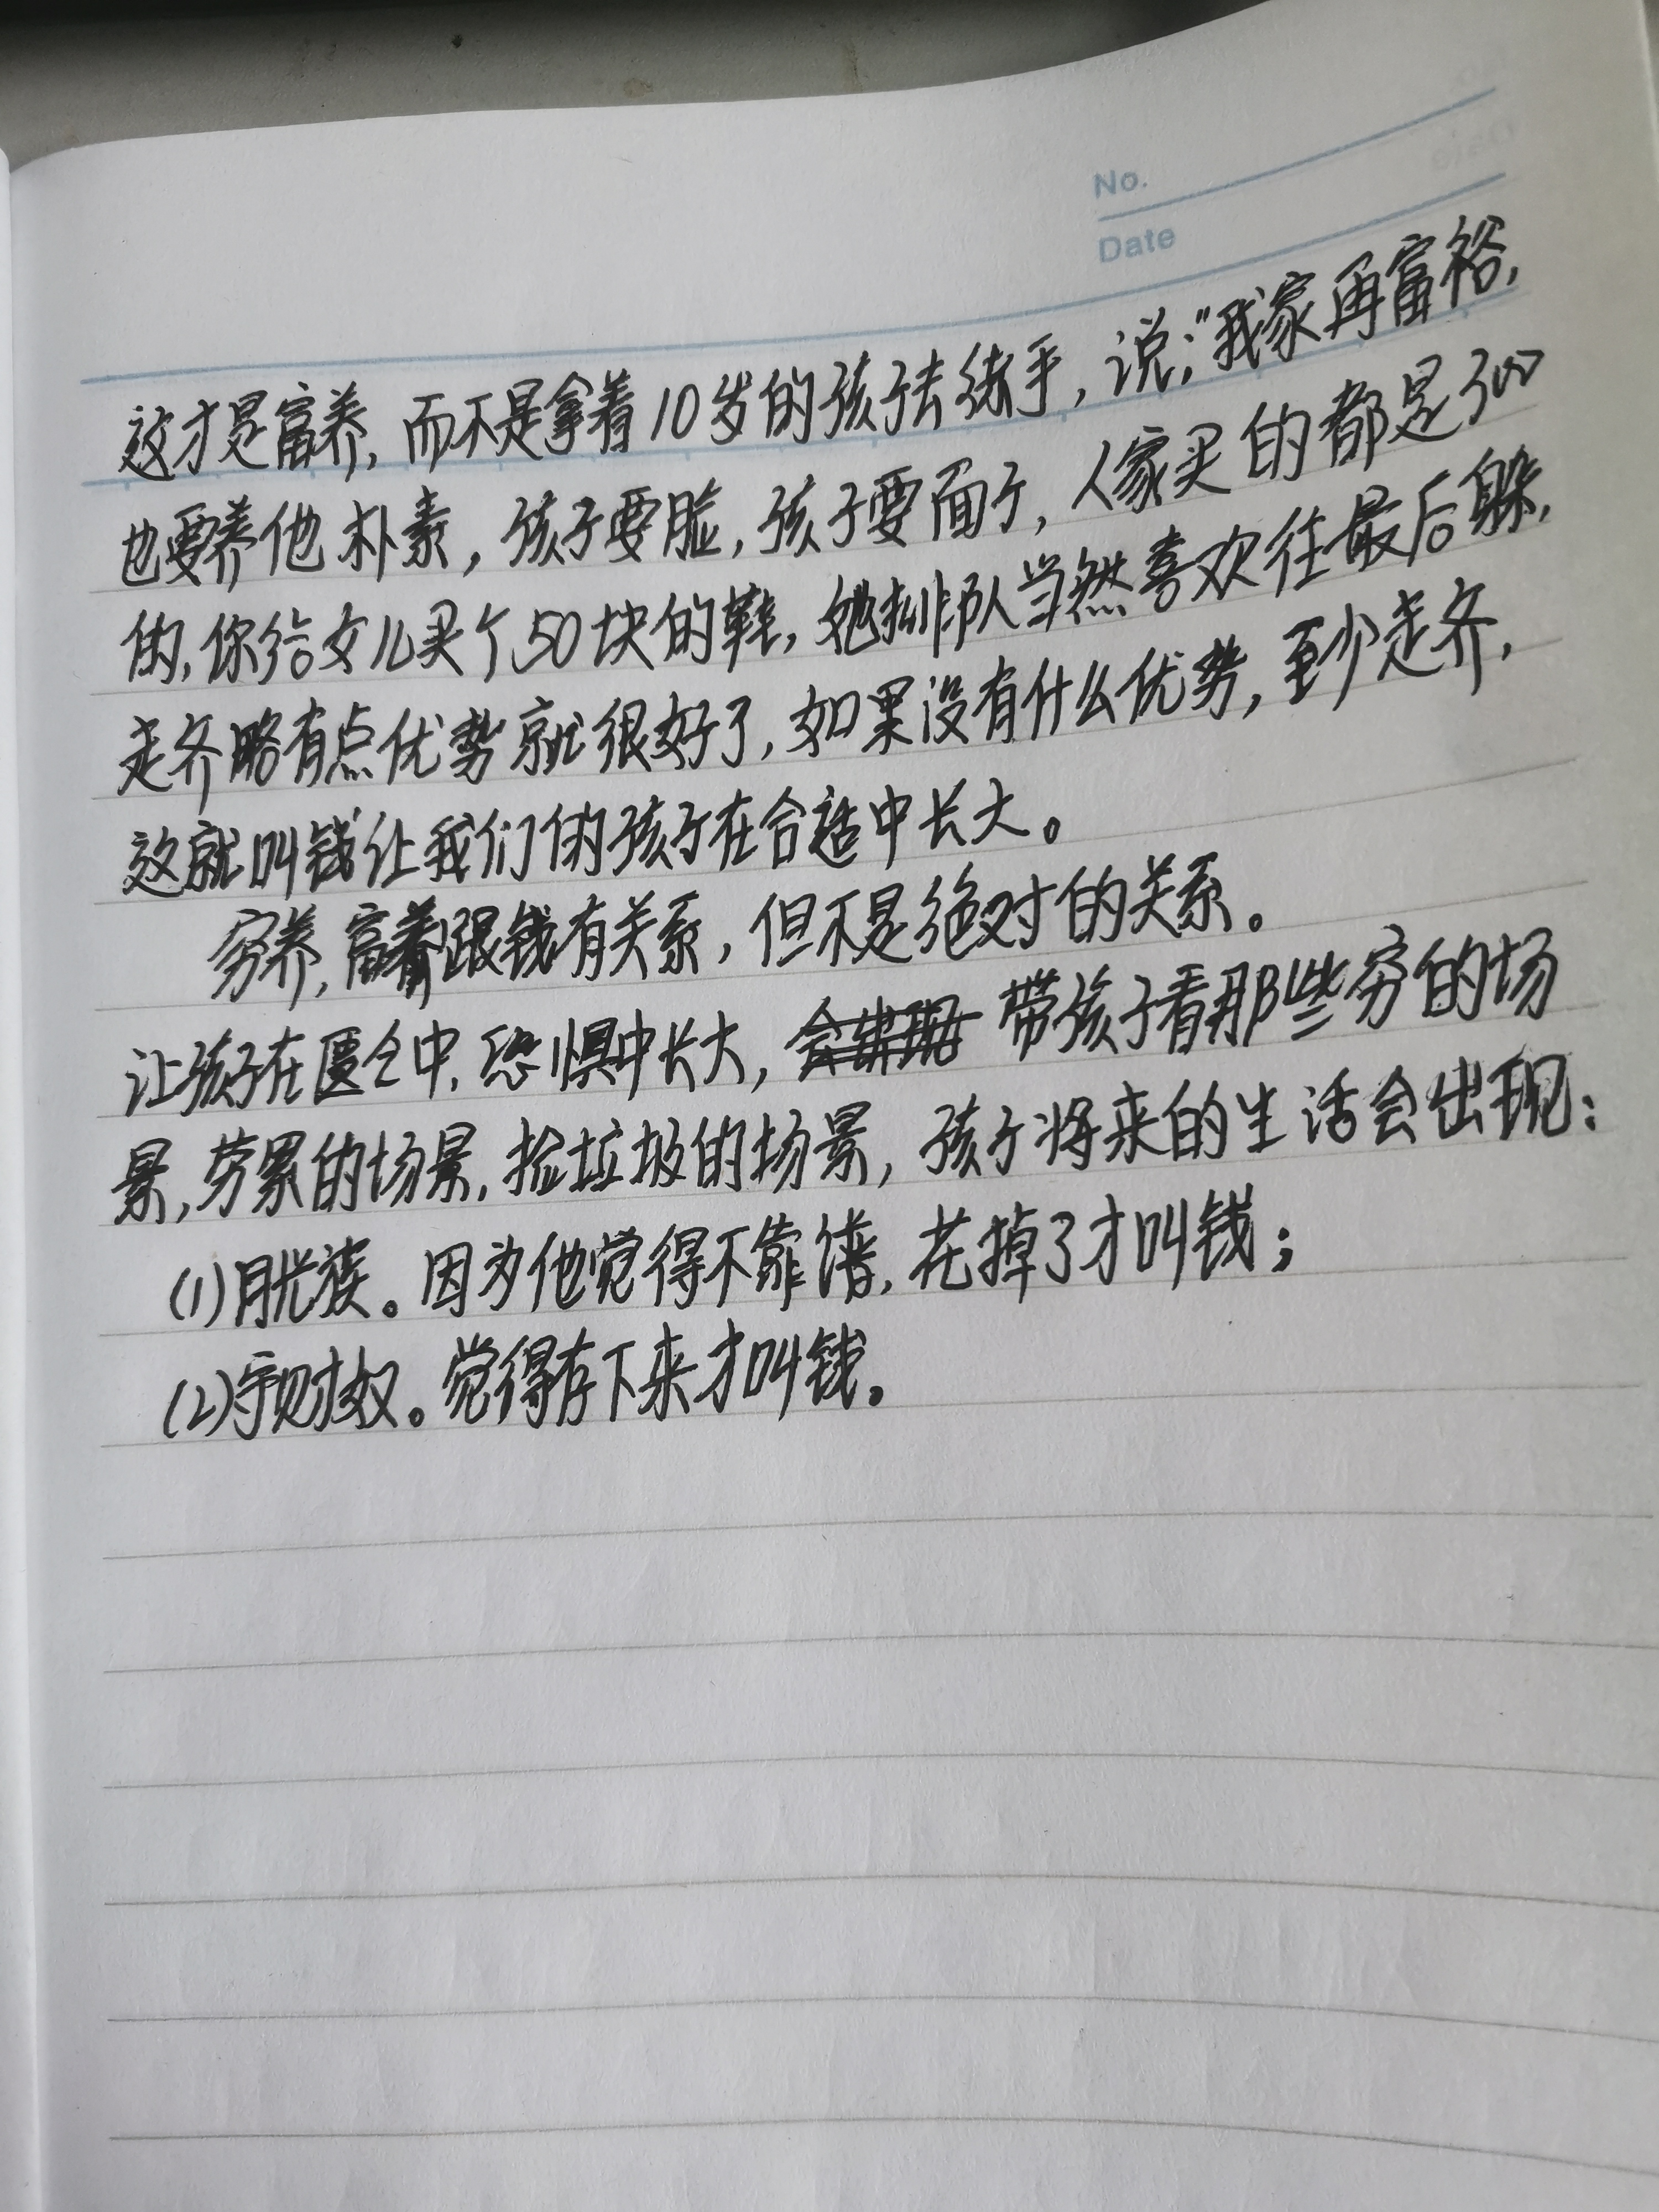 No.
Date
这才是富养，而不是拿着10岁的孩子去练手，说：“我家再富裕，
也要养他朴素，孩子要脸，孩子要面子，人家买的都是300
的，你给女儿买个50块的鞋，她排队当然喜欢往最后躲，
走齐略有点优势就很好了，如果没有什么优势，至少走齐，
这就叫钱让我们的孩子在合适中长大。
穷养，富养跟钱有关系，但不是绝对的关系。
让孩子在匮乏中，恐惧中长大，带孩子看那些穷的场
景，劳累的场景，捡垃圾的场景，孩子将来的生活会出现：
(1)月光族。因为他觉得不靠谱，花掉了才叫钱；
(2)守财奴。觉得存下来才叫钱。